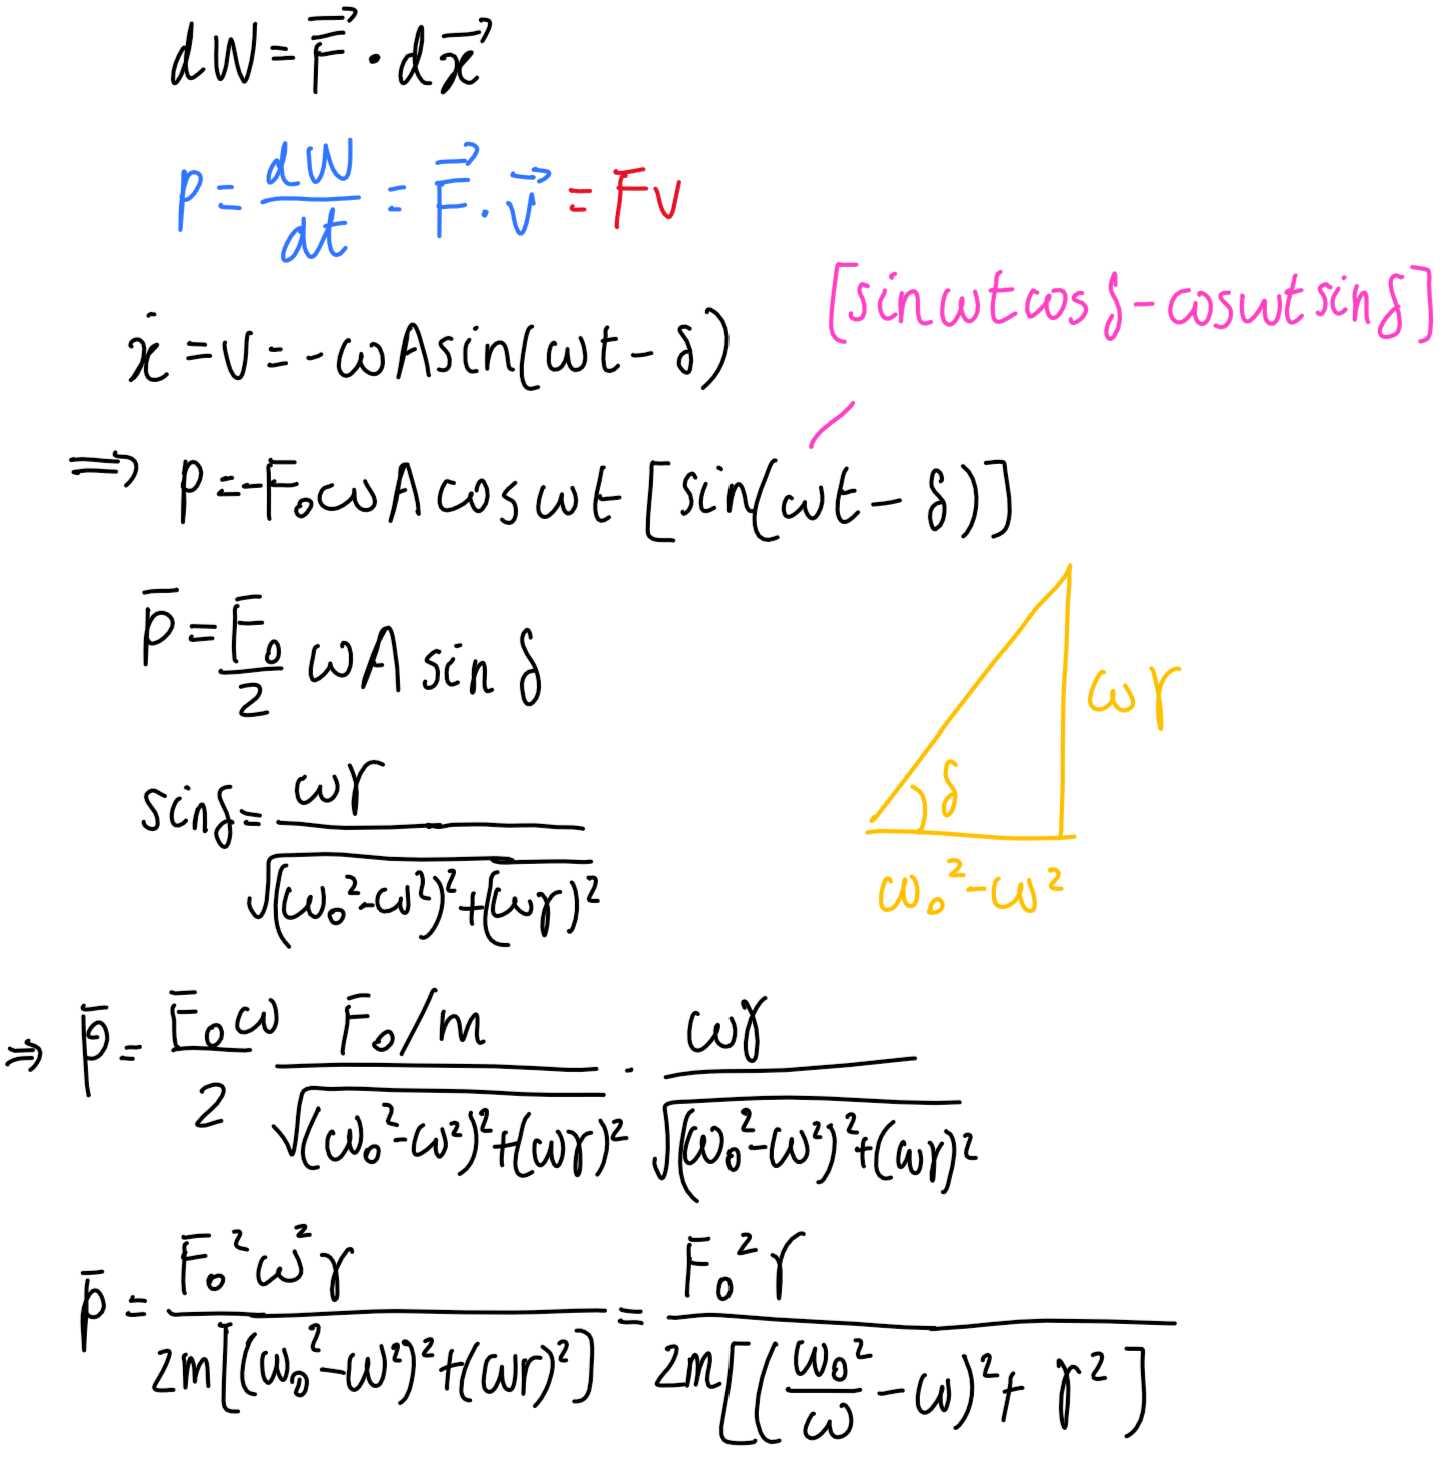 dW = F⃗ · dx⃗
P = dW/dt = F⃗ · v⃗ = Fv
[sin ωt cos δ - cos ωt sin δ]
ẋ = v = -ωA sin(ωt - δ)
⇒ P = -F₀ωA cos ωt [sin(ωt - δ)]
P̄ = F₀/2 ωA sin δ
ωγ
δ
ω₀² - ω²
sin δ = ωγ / √((ω₀² - ω²)² + (ωγ)²)
⇒ P̄ = F₀ω/2 (F₀/m) / √((ω₀² - ω²)² + (ωγ)²) · ωγ / √((ω₀² - ω²)² + (ωγ)²)
P̄ = F₀²ω²γ / 2m[(ω₀² - ω²)² + (ωγ)²] = F₀²γ / 2m[(ω₀²/ω - ω)² + γ²]